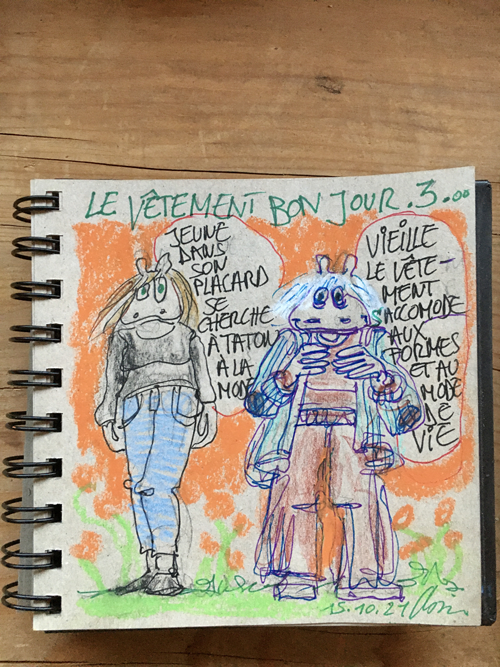 LE VÊTEMENT BON JOUR.3...
JEUNE
DANS
SON
PLACARD
SE
CHERCHE
À TATON
À LA
MODE
VIEILLE
LE VÊTE-
MENT
S'ACCOMODE
AUX
FORMES
ET AU
MODE
DE
VIE
15.10.21